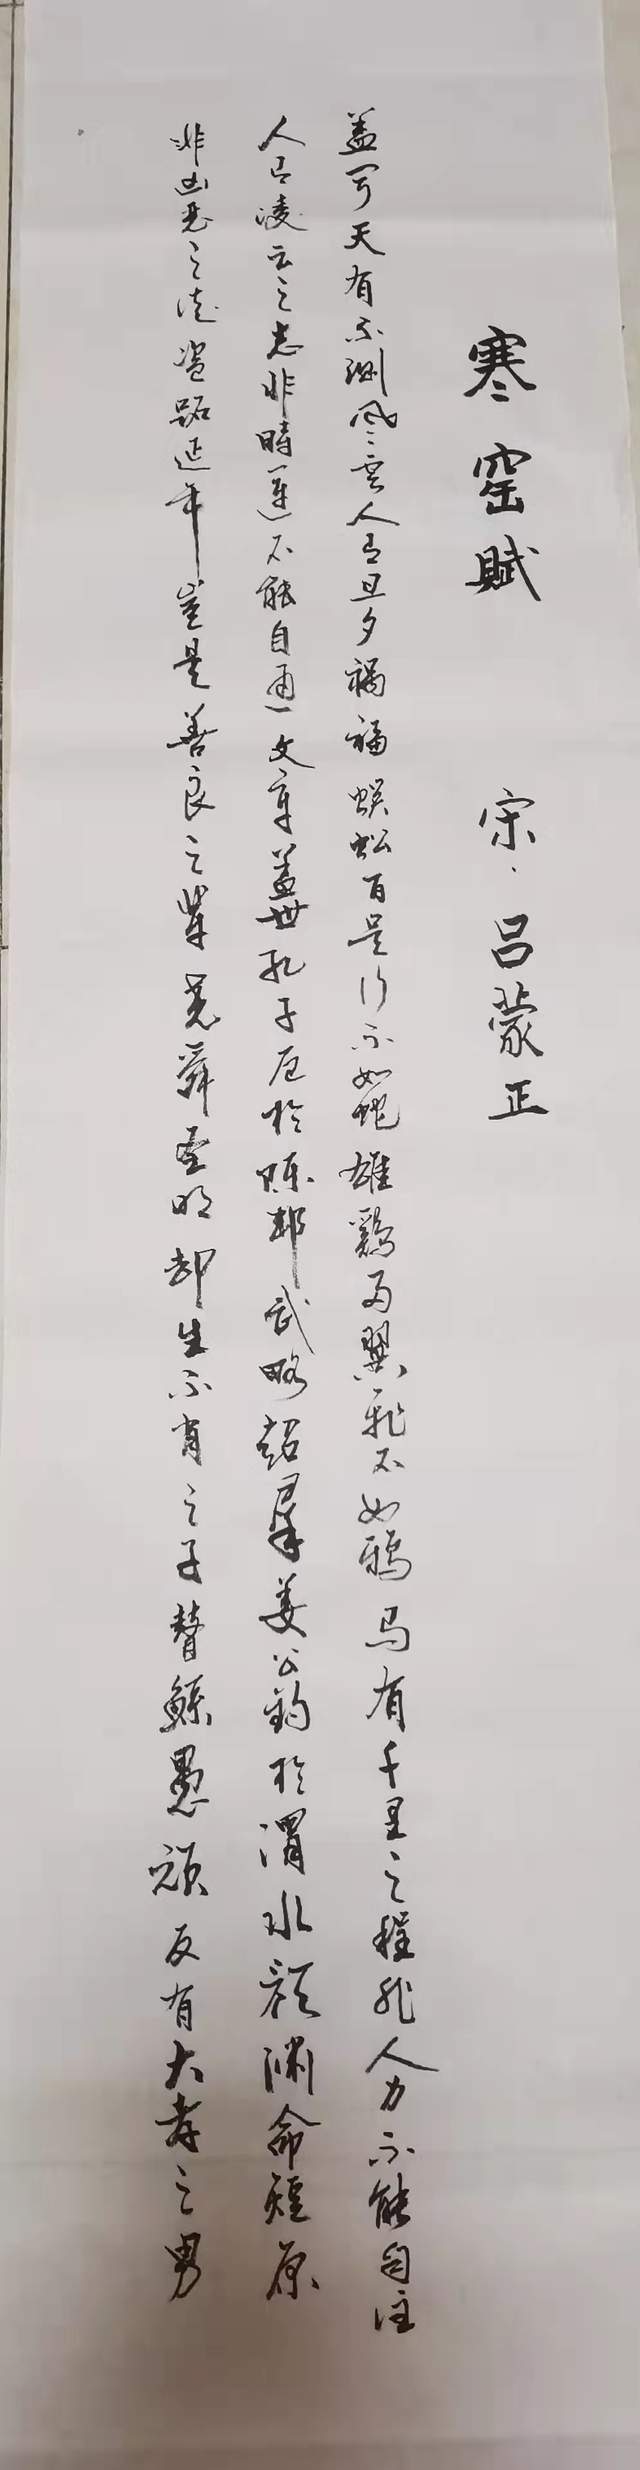 寒窑賦 宋·吕蒙正
盖闻天有不測風雲人有旦夕禍福蜈蚣百足行不如蛇雄鷄两翼飛不如鴉马有千里之程非人力不能自往
人有凌云之志非時運不能自通文章蓋世孔子厄於陈邦武略超羣姜公釣於渭水颜渊命短原
非凶恶之徒盗跖延年豈是善良之輩尧舜圣明却生不肖之子瞽鲧愚顽反有大孝之男